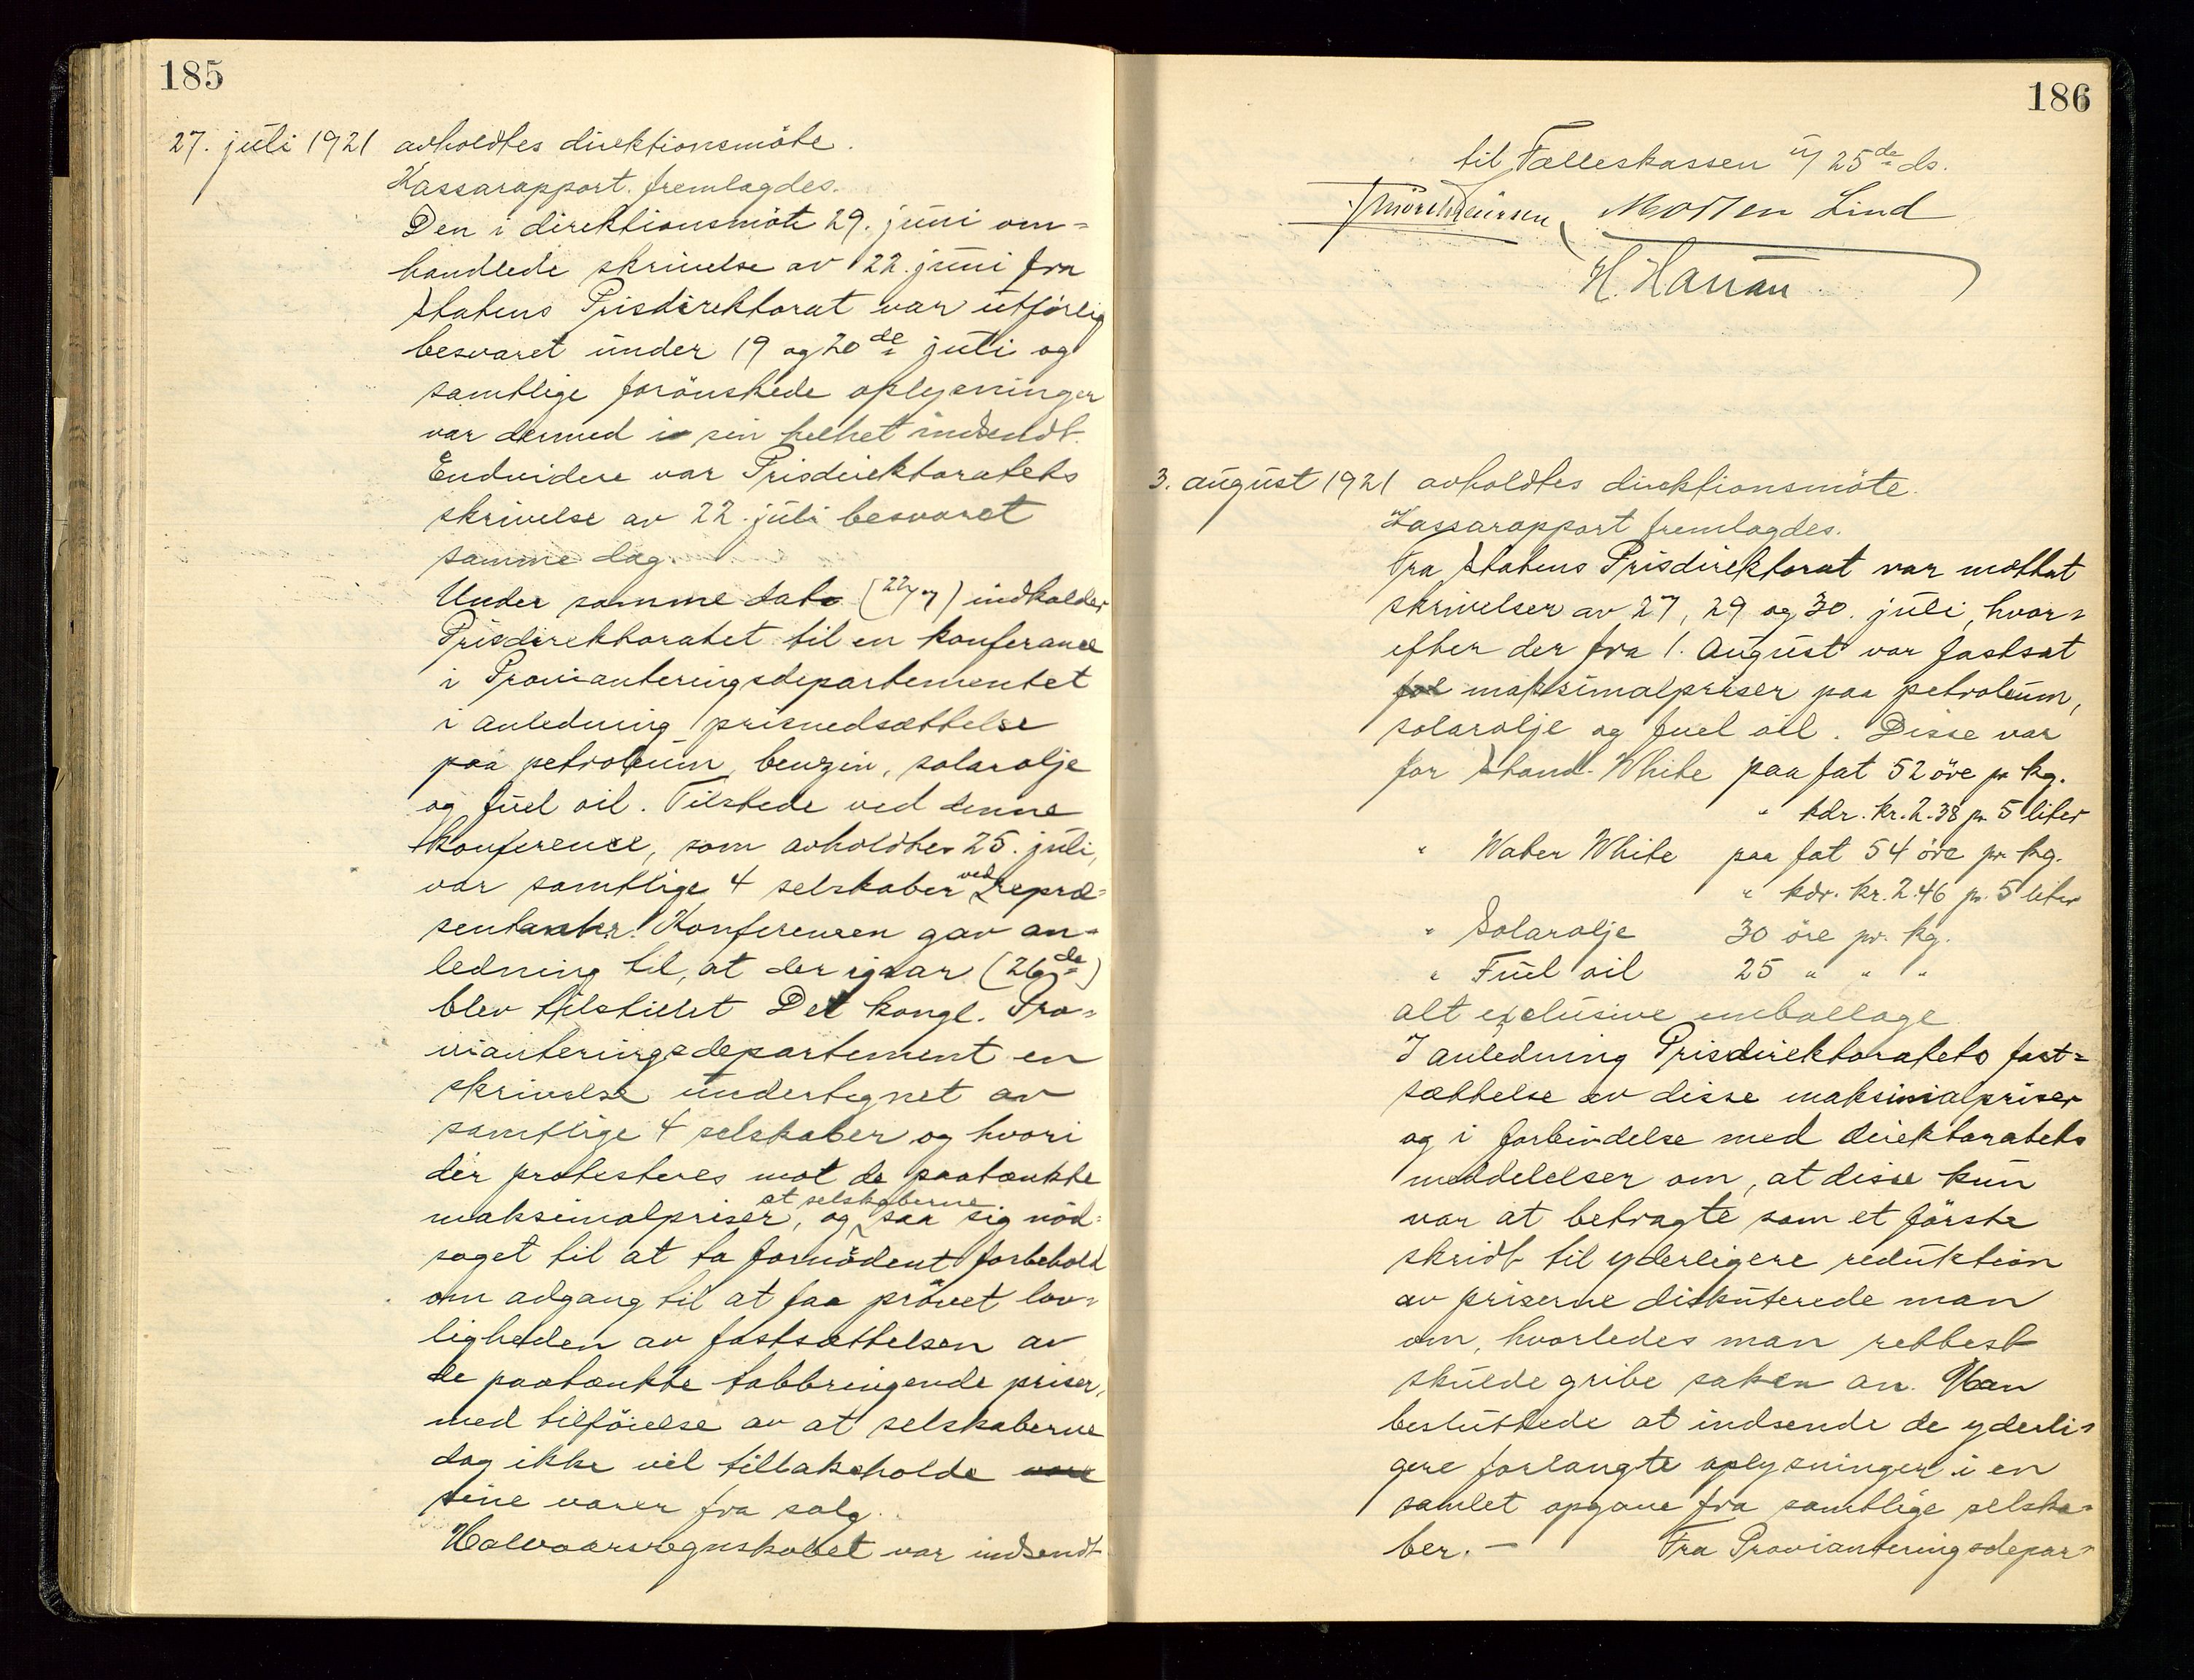 185
27. juli 1921 avholdtes direktionsmöte.
Kassarapport fremlagdes.
Den i direktionsmöte 29. juni om=
handlede skrivelse av 22. juni fra
Statens Prisdirektorat var utförlig
besvaret under 19 og 20de juli og
samtlige forönskede oplysninger
var dermed i sin helhet indsendt.
Endvidere var Prisdirektoratets
skrivelse av 22. juli besvaret
samme dag.
Under samme dato (22/7) indkalder
Prisdirektoratet til en konferance
i Provianteringsdepartementet
i anledning prisnedsættelse
paa petroleum, benzin, solarolje
og fuel oil. Tilstede ved denne
konference, som avholdtes 25. juli,
var samtlige 4 selskaber ved repræ=
sentanter. Konferencen gav an=
ledning til, at der igaar (26de)
blev tilstillet Det kongl. Pro=
vianteringsdepartement en
skrivelse undertegnet av
samtlige 4 selskaber og hvori
der protesteres mot de paatænkte
maksimalpriser, og at selskaberne saa sig nöd=
saget til at ta fornödent forbehold
om adgang til at faa prövet lov=
ligheden av fastsættelsen av
de paatænkte tabbringende priser,
med tilföielse av at selskaberne
dog ikke vil tilbakeholde
sine varer fra salg.
Halvaarsregnskabet var indsendt
186
til Fælleskassen u/ 25de ds.
Morten Lind
3. august 1921 avholdtes direktionsmöte.
Kassarapport fremlagdes.
Fra Statens Prisdirektorat var mottat
skrivelser av 27, 29 og 30. juli, hvor=
efter der fra 1. August var fastsat
maksimalpriser paa petroleum,
solarolje og fuel oil. Disse var
for Stand. White paa fat 52 öre pr kg.
" kdr. kr. 2.38 pr. 5 liter
" Water White paa fat 54 öre pr kg.
" kdr. kr. 2.46 pr. 5 liter
" Solarolje 30 öre pr. kg.
" Fuel oil 25 " " "
alt exclusive emballage
I anledning Prisdirektoratets fast=
sættelse av disse maksimalpriser
og i forbindelse med direktoratets
meddelelser om, at disse kun
var at betragte som et förste
skridt til yderligere reduktion
av priserne diskuterede man
om, hvorledes man rettest
skulde gribe saken an. Man
besluttede at indsende de yderli=
gere forlangte oplysninger i en
samlet opgave fra samtlige selska=
ber. — Fra Provianteringsdepar=